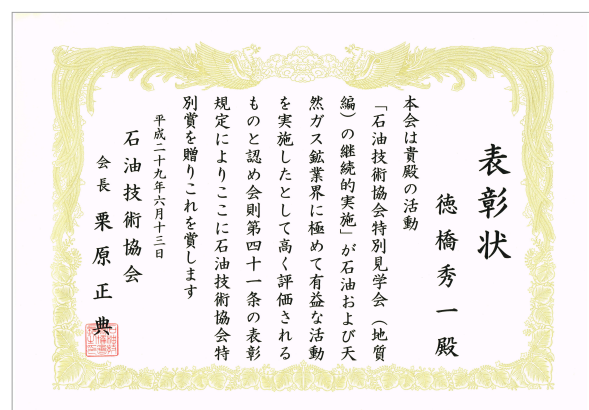 表彰状
徳橋秀一殿
本会は貴殿の活動
「石油技術協会特別見学会（地質
編）の継続的実施」が石油および天
然ガス鉱業界に極めて有益な活動
を実施したとして高く評価される
ものと認め会則第四十一条の表彰
規定によりここに石油技術協会特
別賞を贈りこれを賞します
平成二十九年六月十三日
石油技術協会
会長 栗原正典